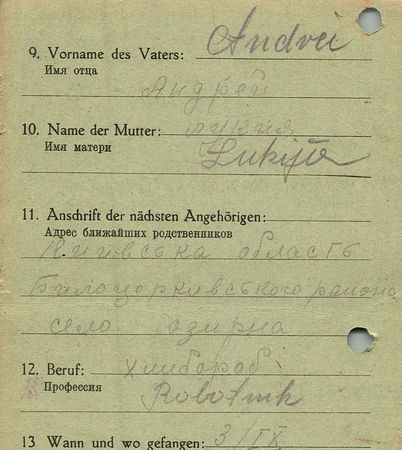 9. Vorname des Vaters: Andrei
Имя отца
Андрей
10. Name der Mutter: лукия
Имя матери
Lukija
11. Anschrift der nächsten Angehörigen:
Адрес ближайших родственников
Киивська область
Билоцоркивського района
село озирна
12. Beruf: хлибороб
Профессия
Robotnik
13 Wann und wo gefangen: 3/IX